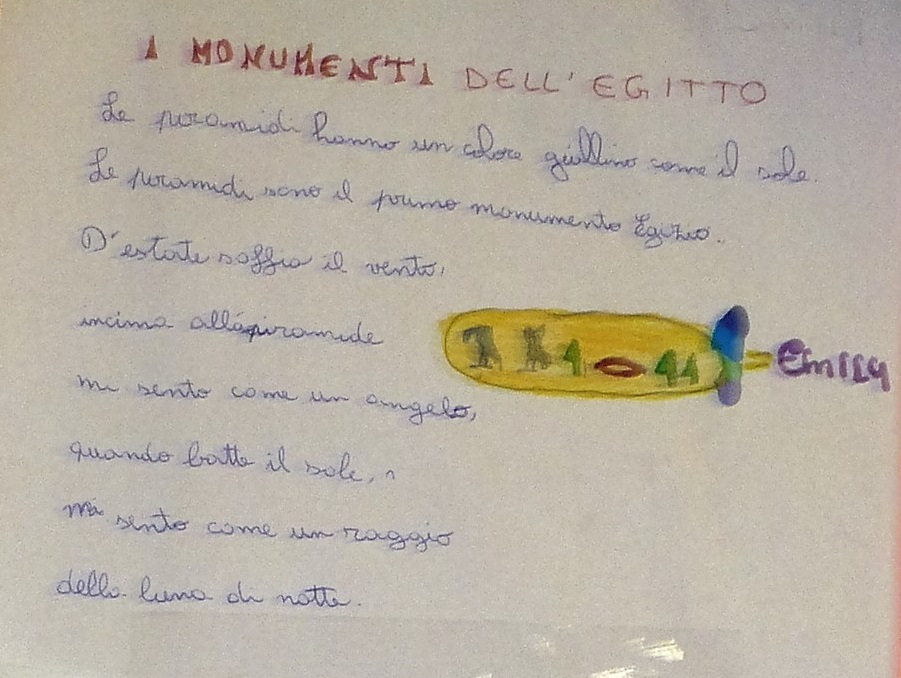 I MONUMENTI DELL'EGITTO
Le piramidi hanno un colore giallino come il sole.
Le piramidi sono il primo monumento Egizio.
D'estate soffia il vento,
incima alla piramide
mi sento come un angelo,
quando batte il sole,
mi sento come un raggio
della luna di notte.
Emily